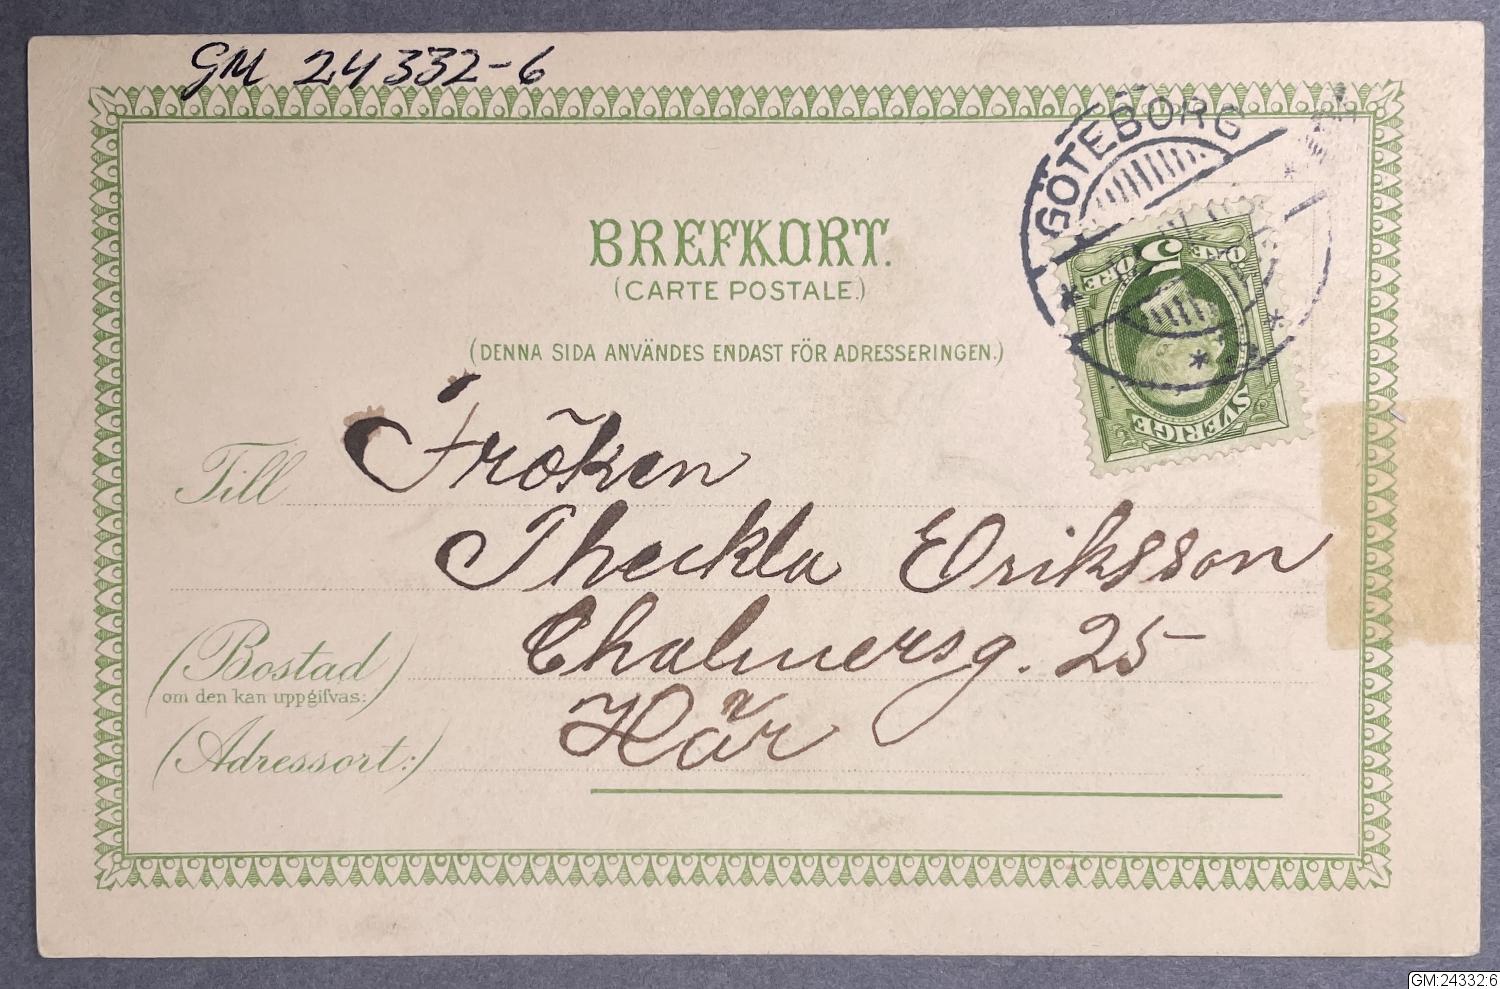 GM 24332-6
GÖTEBORG
5
ÖRE ÖRE
SVERIGE
BREFKORT.
(CARTE POSTALE.)
(DENNA SIDA ANVÄNDES ENDAST FÖR ADRESSERINGEN.)
Till Fröken
Theckla Eriksson
(Bostad Chalmersg. 25
om den kan uppgifvas:)
(Adressort:) Här
GM:24332:6